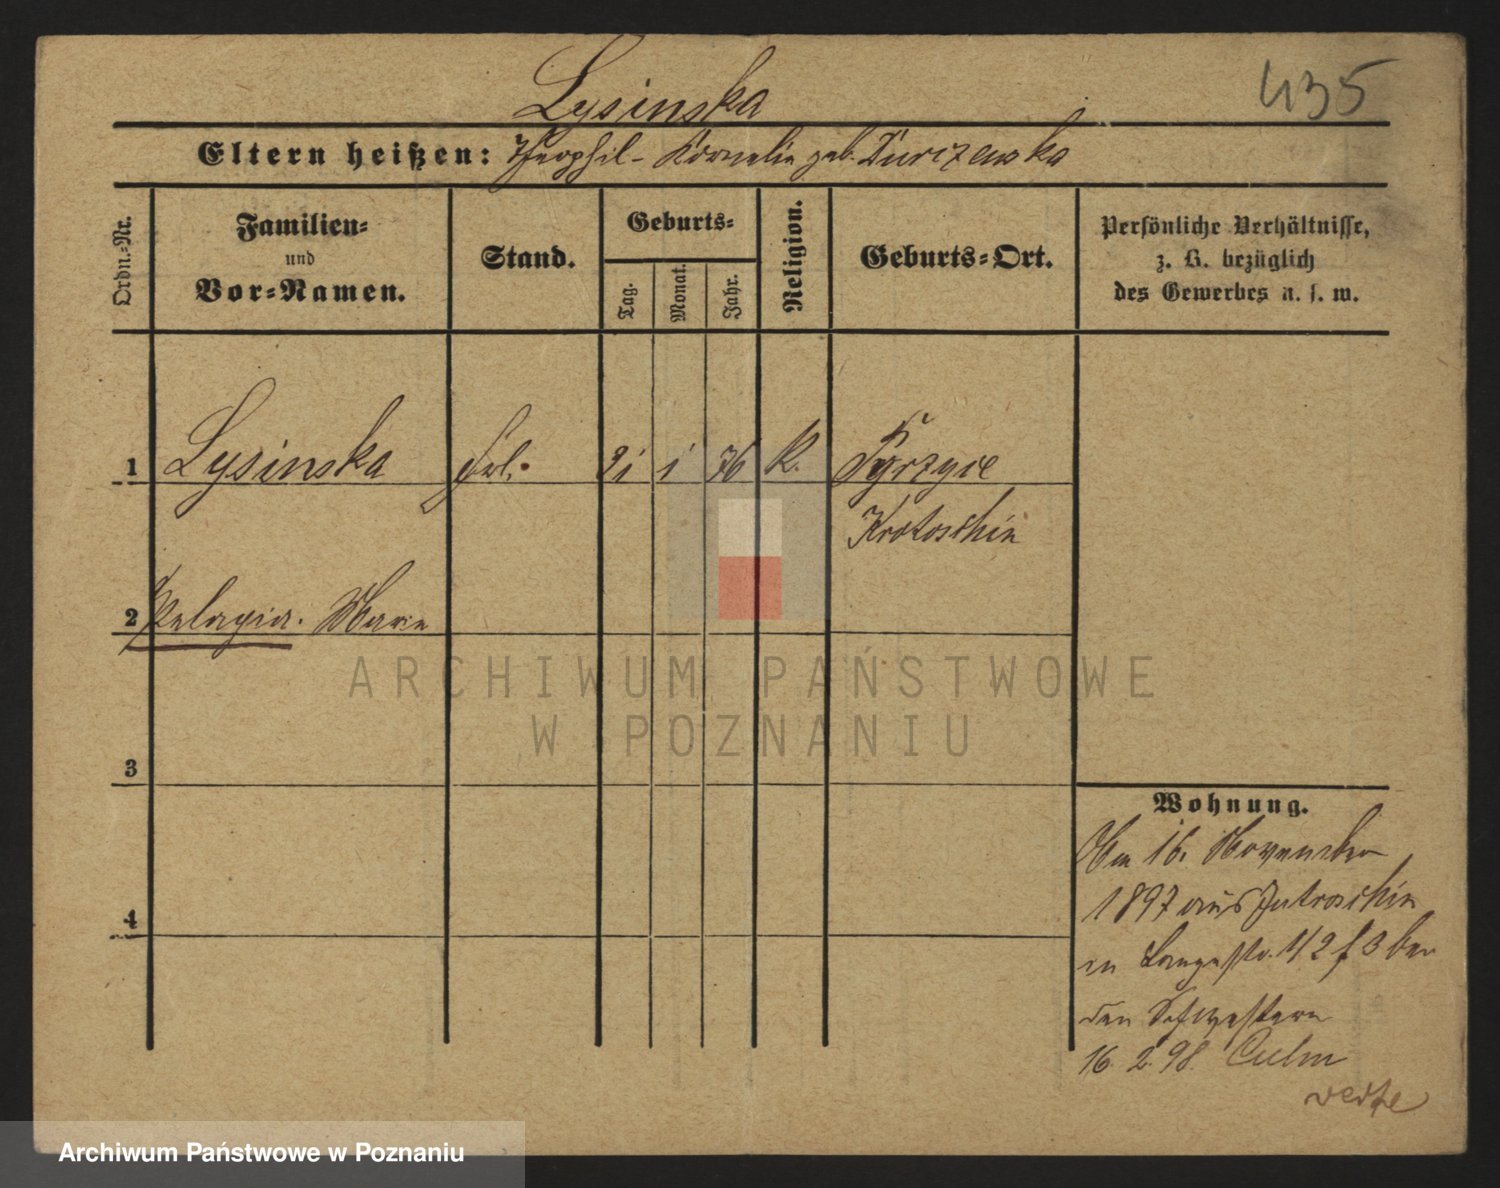 Lysinska
435
Eltern heißen: Theophil - Kornelia geb. Durczewska
Ordn.-Nr.
Familien-
und
Vor-Namen.
Stand.
Geburts-
Tag.
Monat.
Jahr.
Religion.
Geburts-Ort.
Persönliche Verhältnisse,
z. B. bezüglich
des Gewerbes u. s. w.
1 Lysinska Frl. 21 1 76 K.
Krotoschin
2 Pelagia. Marie
3
4
Wohnung.
Am 16. November
1897 aus Jutroschin
in Langestr. 1/2 f 3 bei
den Schwestern
16. 2. 98. Culm
verte
ARCHIWUM PAŃSTWOWE
W POZNANIU
Archiwum Państwowe w Poznaniu